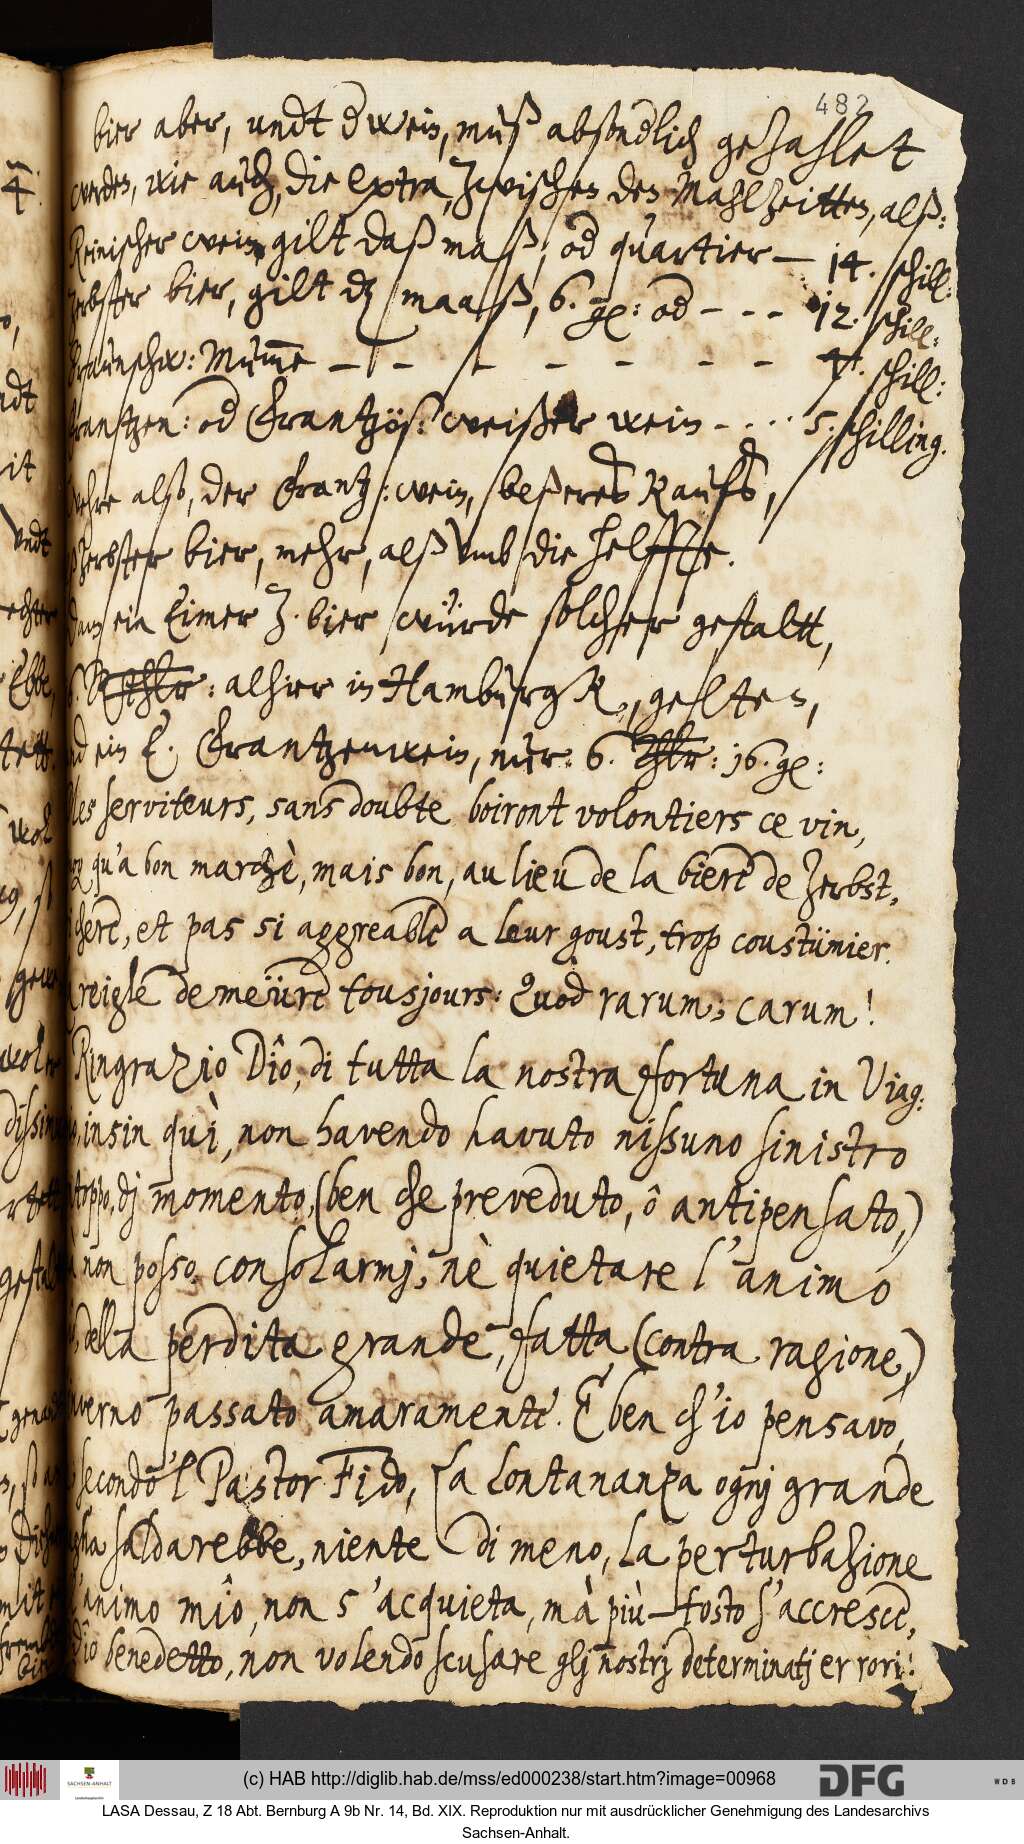 482
bier aber, undt d wein, muß absonderlich gezahlet
werden, wie auch, die extra, zwischen den Mahlzeitten, alß:
Reinischer wein gilt daß maß, od quartier — 14. schill:
Zerbster bier, gilt dz maaß, 6. ge: od - - - 12. schill:
Braunschw: Mumme — — — — — — 4. schill:
Frantzen: od Frantzös: weißer wein - . . . 5. schilling.
Wehre also, der Frantz: wein, beßeres Kaufs,
Zerbster bier, mehr, alß umb die helffte.
Dann ein Eimer Z. bier würde solcher gestaltt,
Rthlr: alhier in Hamburgk, gelten,
ein E. Frantzenwein, nur: 6. Thlr: 16. ge:
les serviteurs, sans doubte boiront volontiers ce vin,
qu'a bon marchè, mais bon, au lieu de la biere de Zerbst,
chere, et pas si aggreable a leur goust, trop coustümier.
reigle demeüre tousjours: Quod rarum; carum!
Ringrazio Dîo, di tutta la nostra fortuna in Viag:
insin quì, non havendo havuto nissuno sinistro
ntoppo, dj momento, (ben che preveduto, ô antipensato,)
non posso consolarmj, nè quietare l'animo
della perdita grande, fatta (contra ragione,)
inverno passato amaramente. E ben ch'io pensavo,
secondo 'l Pastor Fido, La lontananza ognj grande
piagha saldarebbe, niente di meno, la perturbazione
l'animo mîo, non s'acquieta, mà più-tosto s'accresce,
Dîo benedetto, non volendo scusare glj nostrj determinatj errori!
(c) HAB http://diglib.hab.de/mss/ed000238/start.htm?image=00968
SACHSEN-ANHALT
DFG
WDB
LASA Dessau, Z 18 Abt. Bernburg A 9b Nr. 14, Bd. XIX. Reproduktion nur mit ausdrücklicher Genehmigung des Landesarchivs
Sachsen-Anhalt.